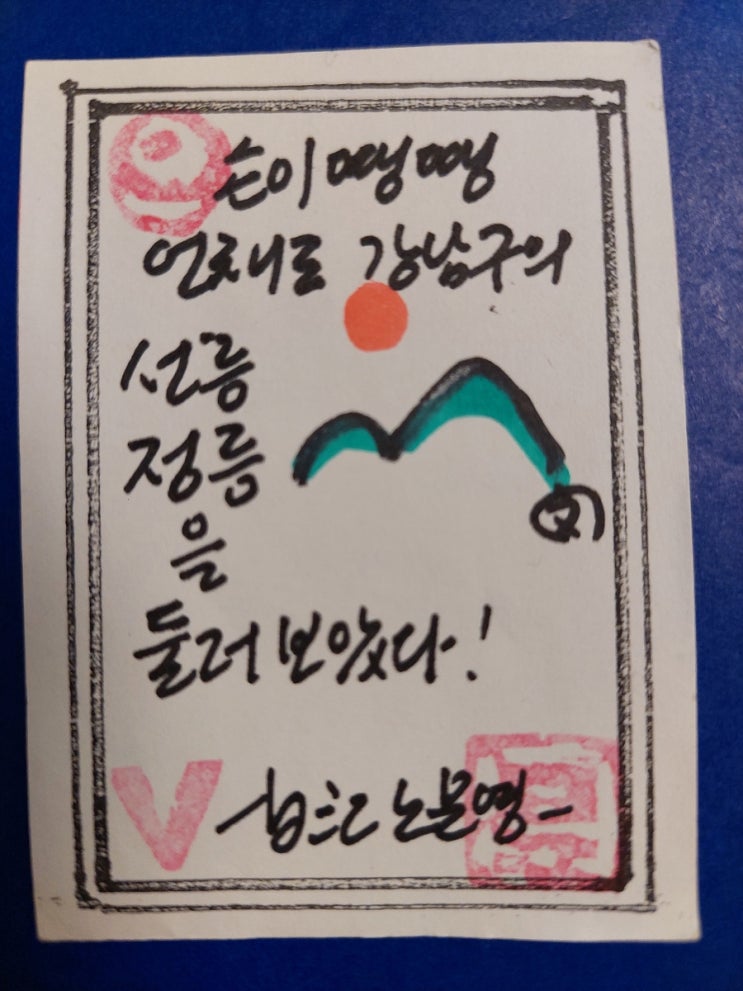 손이 땡땡
언채로 강남구의
선릉
정릉
을
둘러보았다!
노문영